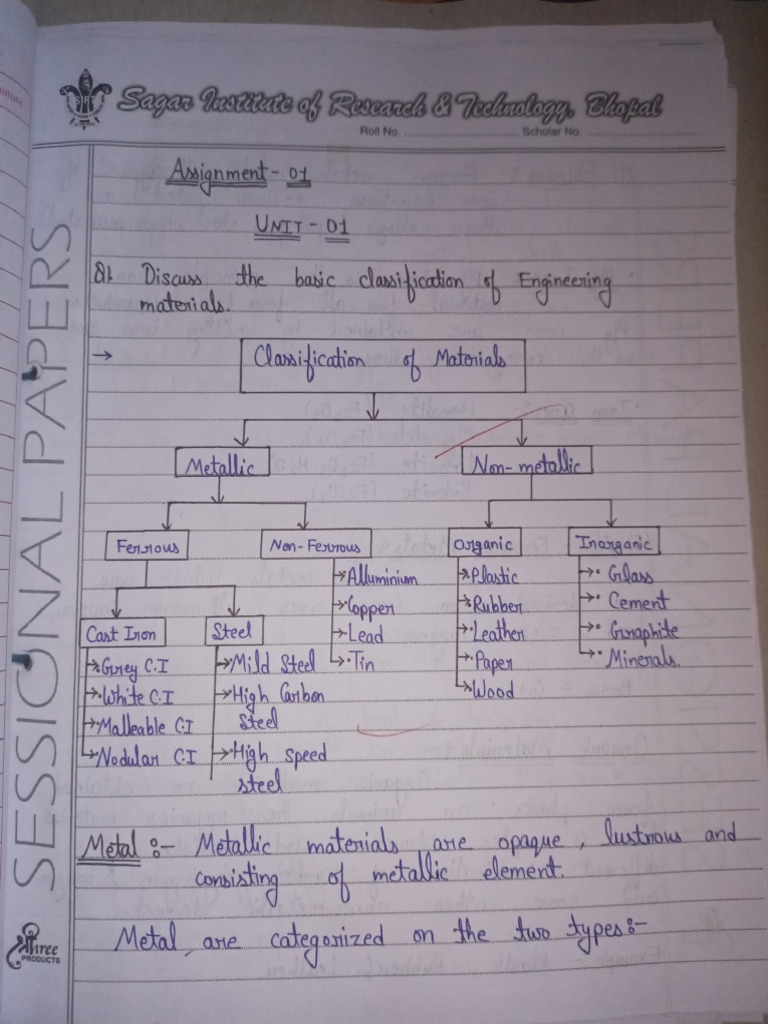 Sagar Institute of Research & Technology, Bhopal
Roll No. Scholar No.
Assignment - 01
UNIT - 01
Q1. Discuss the basic classification of Engineering
materials.
→ Classification of Materials
Metallic Non-metallic
Ferrous Non-Ferrous Organic Inorganic
Alluminium
Copper
Lead
Tin
Plastic
Rubber
Leather
Paper
Wood
Glass
Cement
Graphite
Minerals.
Cast Iron Steel
Grey C.I
White C.I
Malleable C.I
Nodular C.I
Mild Steel
High Carbon
Steel
High speed
steel
Metal :- Metallic materials are opaque, lustrous and
consisting of metallic element.
Metal, are categorized on the two types:-
SESSIONAL PAPERS
Shree
PRODUCTS